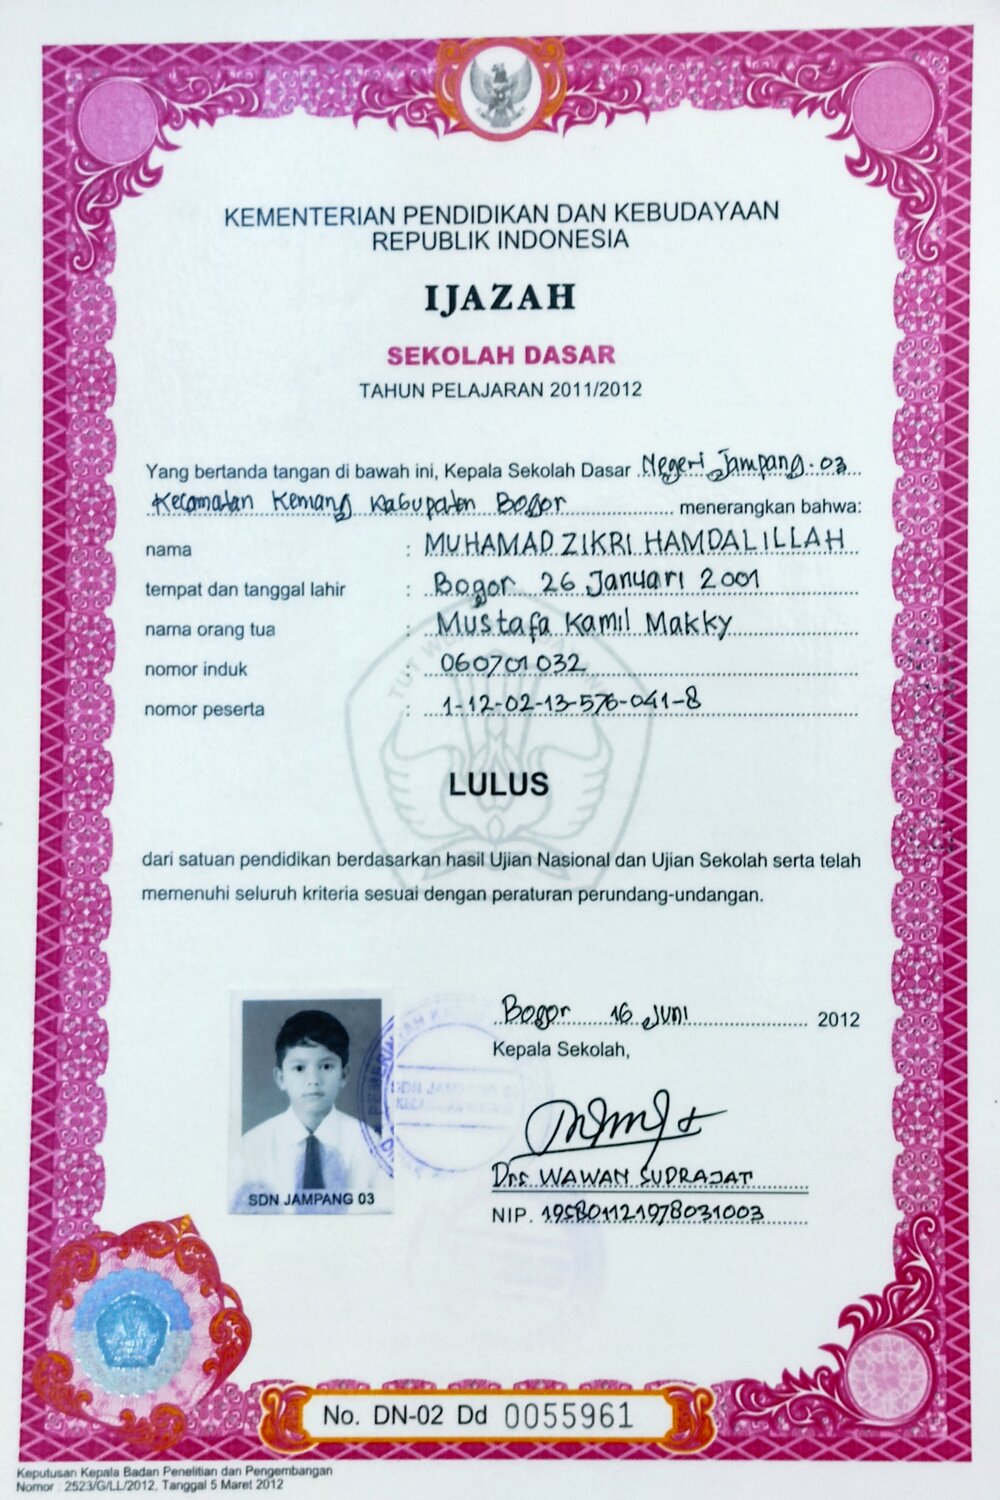 KEMENTERIAN PENDIDIKAN DAN KEBUDAYAAN
REPUBLIK INDONESIA
IJAZAH
SEKOLAH DASAR
TAHUN PELAJARAN 2011/2012
Yang bertanda tangan di bawah ini, Kepala Sekolah Dasar Negeri Jampang 03
Kecamatan Kemang Kabupaten Bogor menerangkan bahwa:
nama : MUHAMAD ZIKRI HAMDALILLAH
tempat dan tanggal lahir : Bogor 26 Januari 2001
nama orang tua : Mustafa Kamil Makky
nomor induk : 060701032
nomor peserta : 1-12-02-13-576-041-8
LULUS
dari satuan pendidikan berdasarkan hasil Ujian Nasional dan Ujian Sekolah serta telah
memenuhi seluruh kriteria sesuai dengan peraturan perundang-undangan.
Bogor 16 Juni 2012
Kepala Sekolah,
Drs. WAWAN SUDRAJAT
NIP. 195801121978031003
SDN JAMPANG 03
No. DN-02 Dd 0055961
Keputusan Kepala Badan Penelitian dan Pengembangan
Nomor : 2523/G/LL/2012, Tanggal 5 Maret 2012